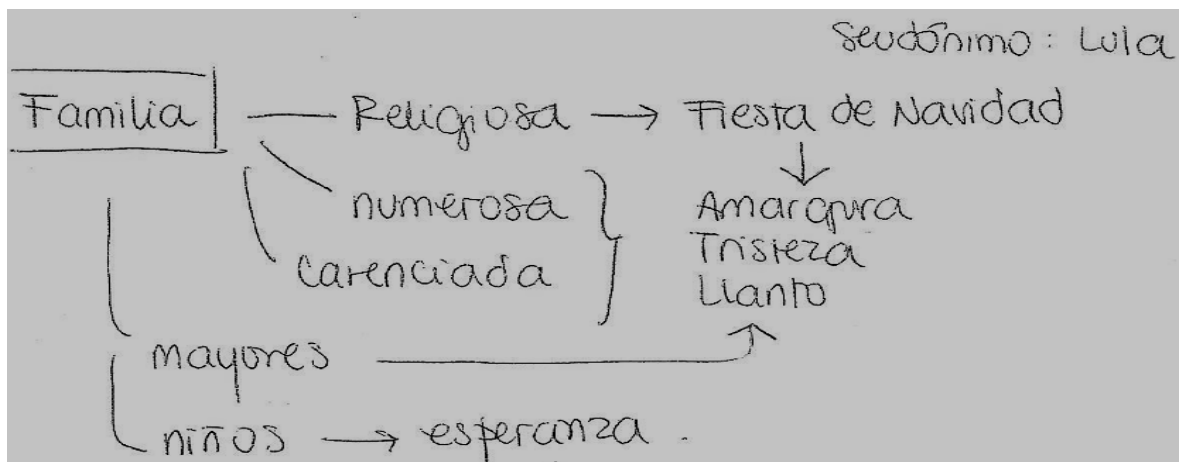 Seudónimo: Lula
Familia — Religiosa → Fiesta de Navidad
numerosa
Amargura
Tristeza
carenciada
Llanto
mayores
niños → esperanza.